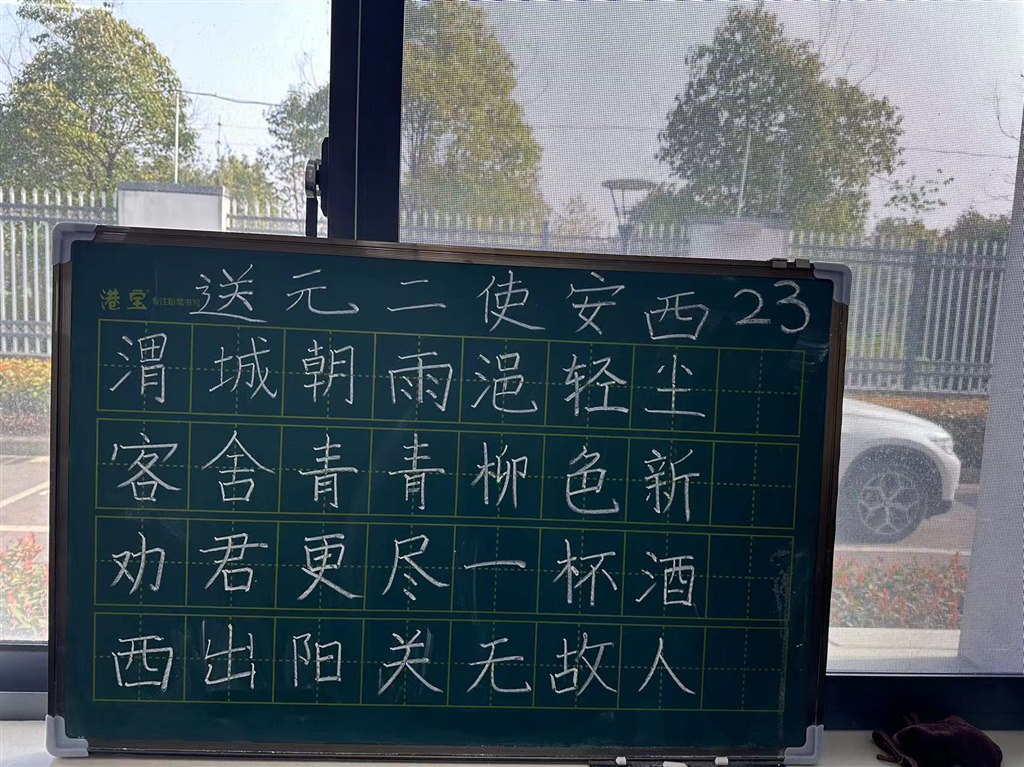 港宝 专注粉笔书写
送元二使安西 23
渭城朝雨浥轻尘
客舍青青柳色新
劝君更尽一杯酒
西出阳关无故人